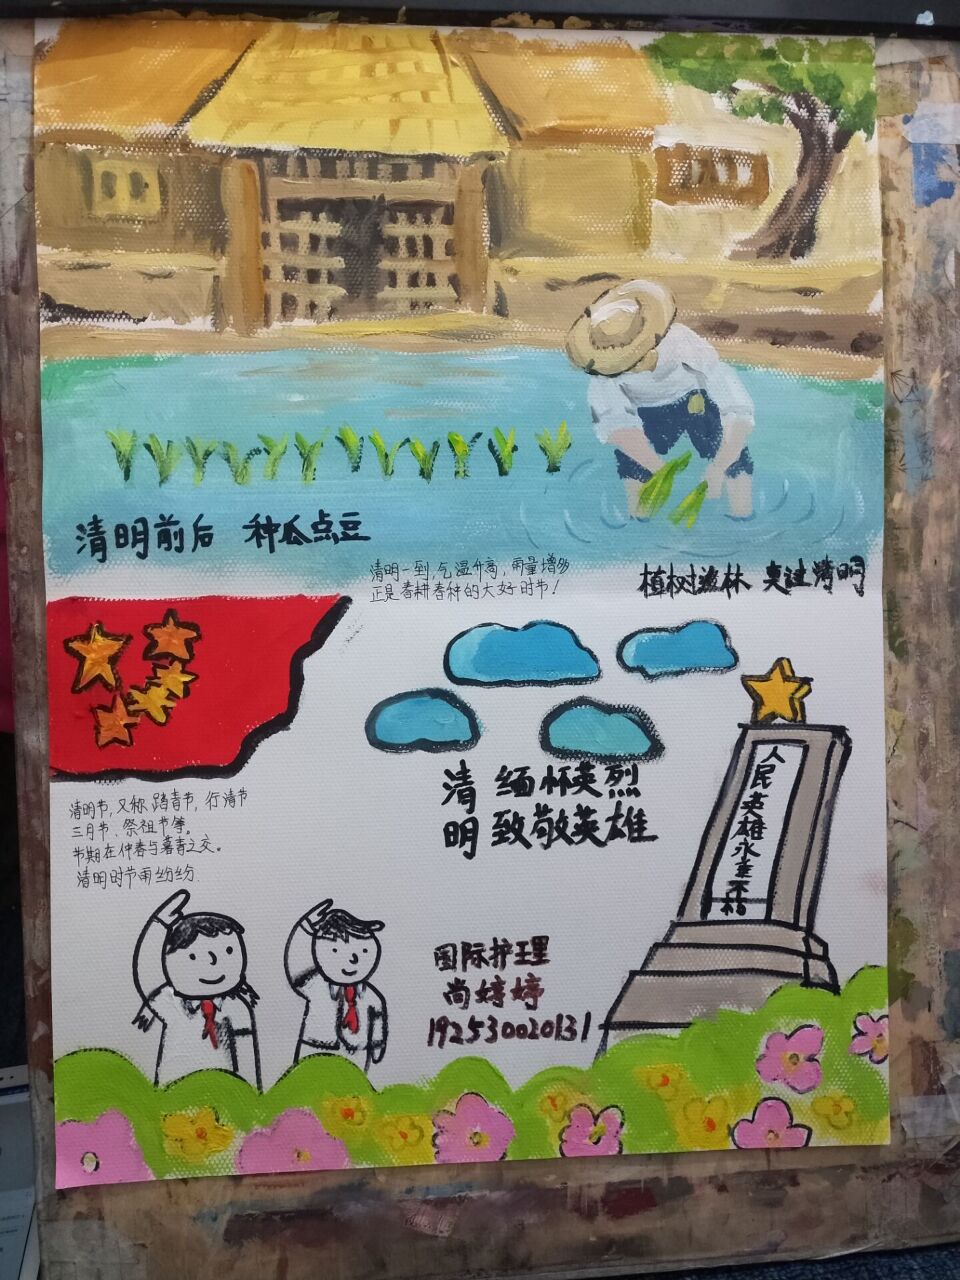 清明前后 种瓜点豆
清明一到,气温升高,雨量增多
正是春耕春种的大好时节!
植树造林 莫过清明
清明
缅怀英烈
致敬英雄
人民英雄永垂不朽
清明节,又称踏青节,行清节
三月节、祭祖节等。
节期在仲春与暮春之交。
清明时节雨纷纷
国际护理
尚婷婷
192530020131